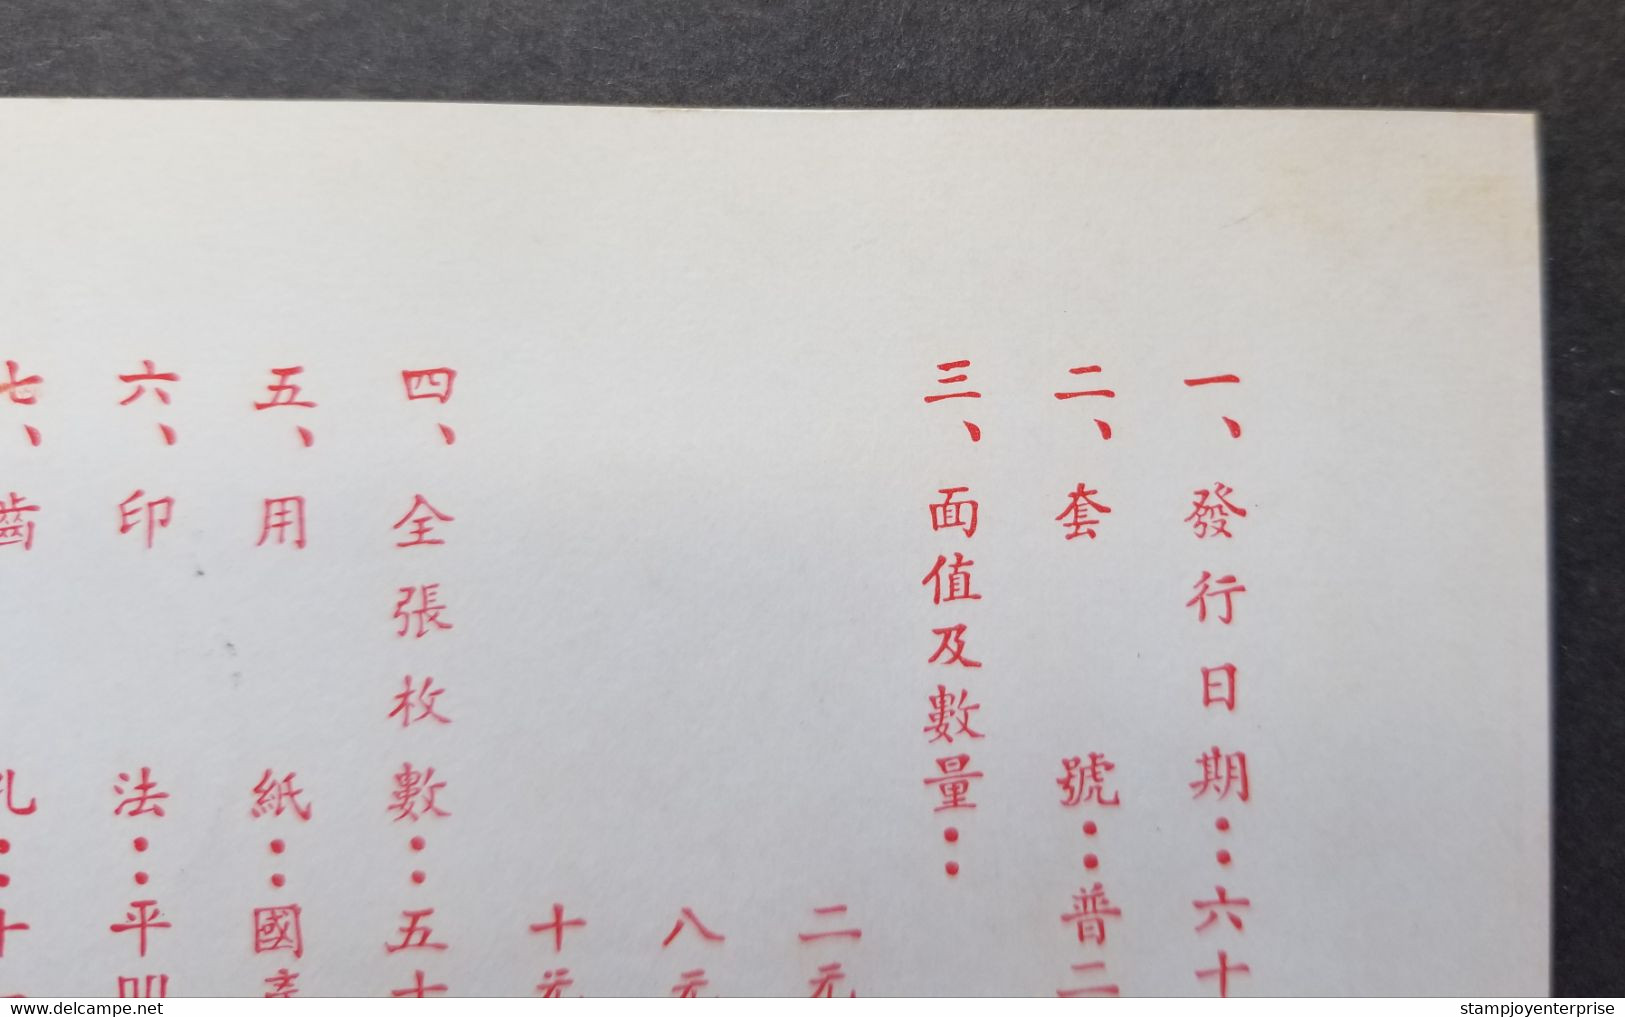 一、發行日期：六十
二、套號：普二
三、面值及數量：
二元
八元
十元
四、全張枚數：五十
五、用紙：國產
六、印法：平凹
七、齒孔：十
delcampe.net
stampjoyenterprise